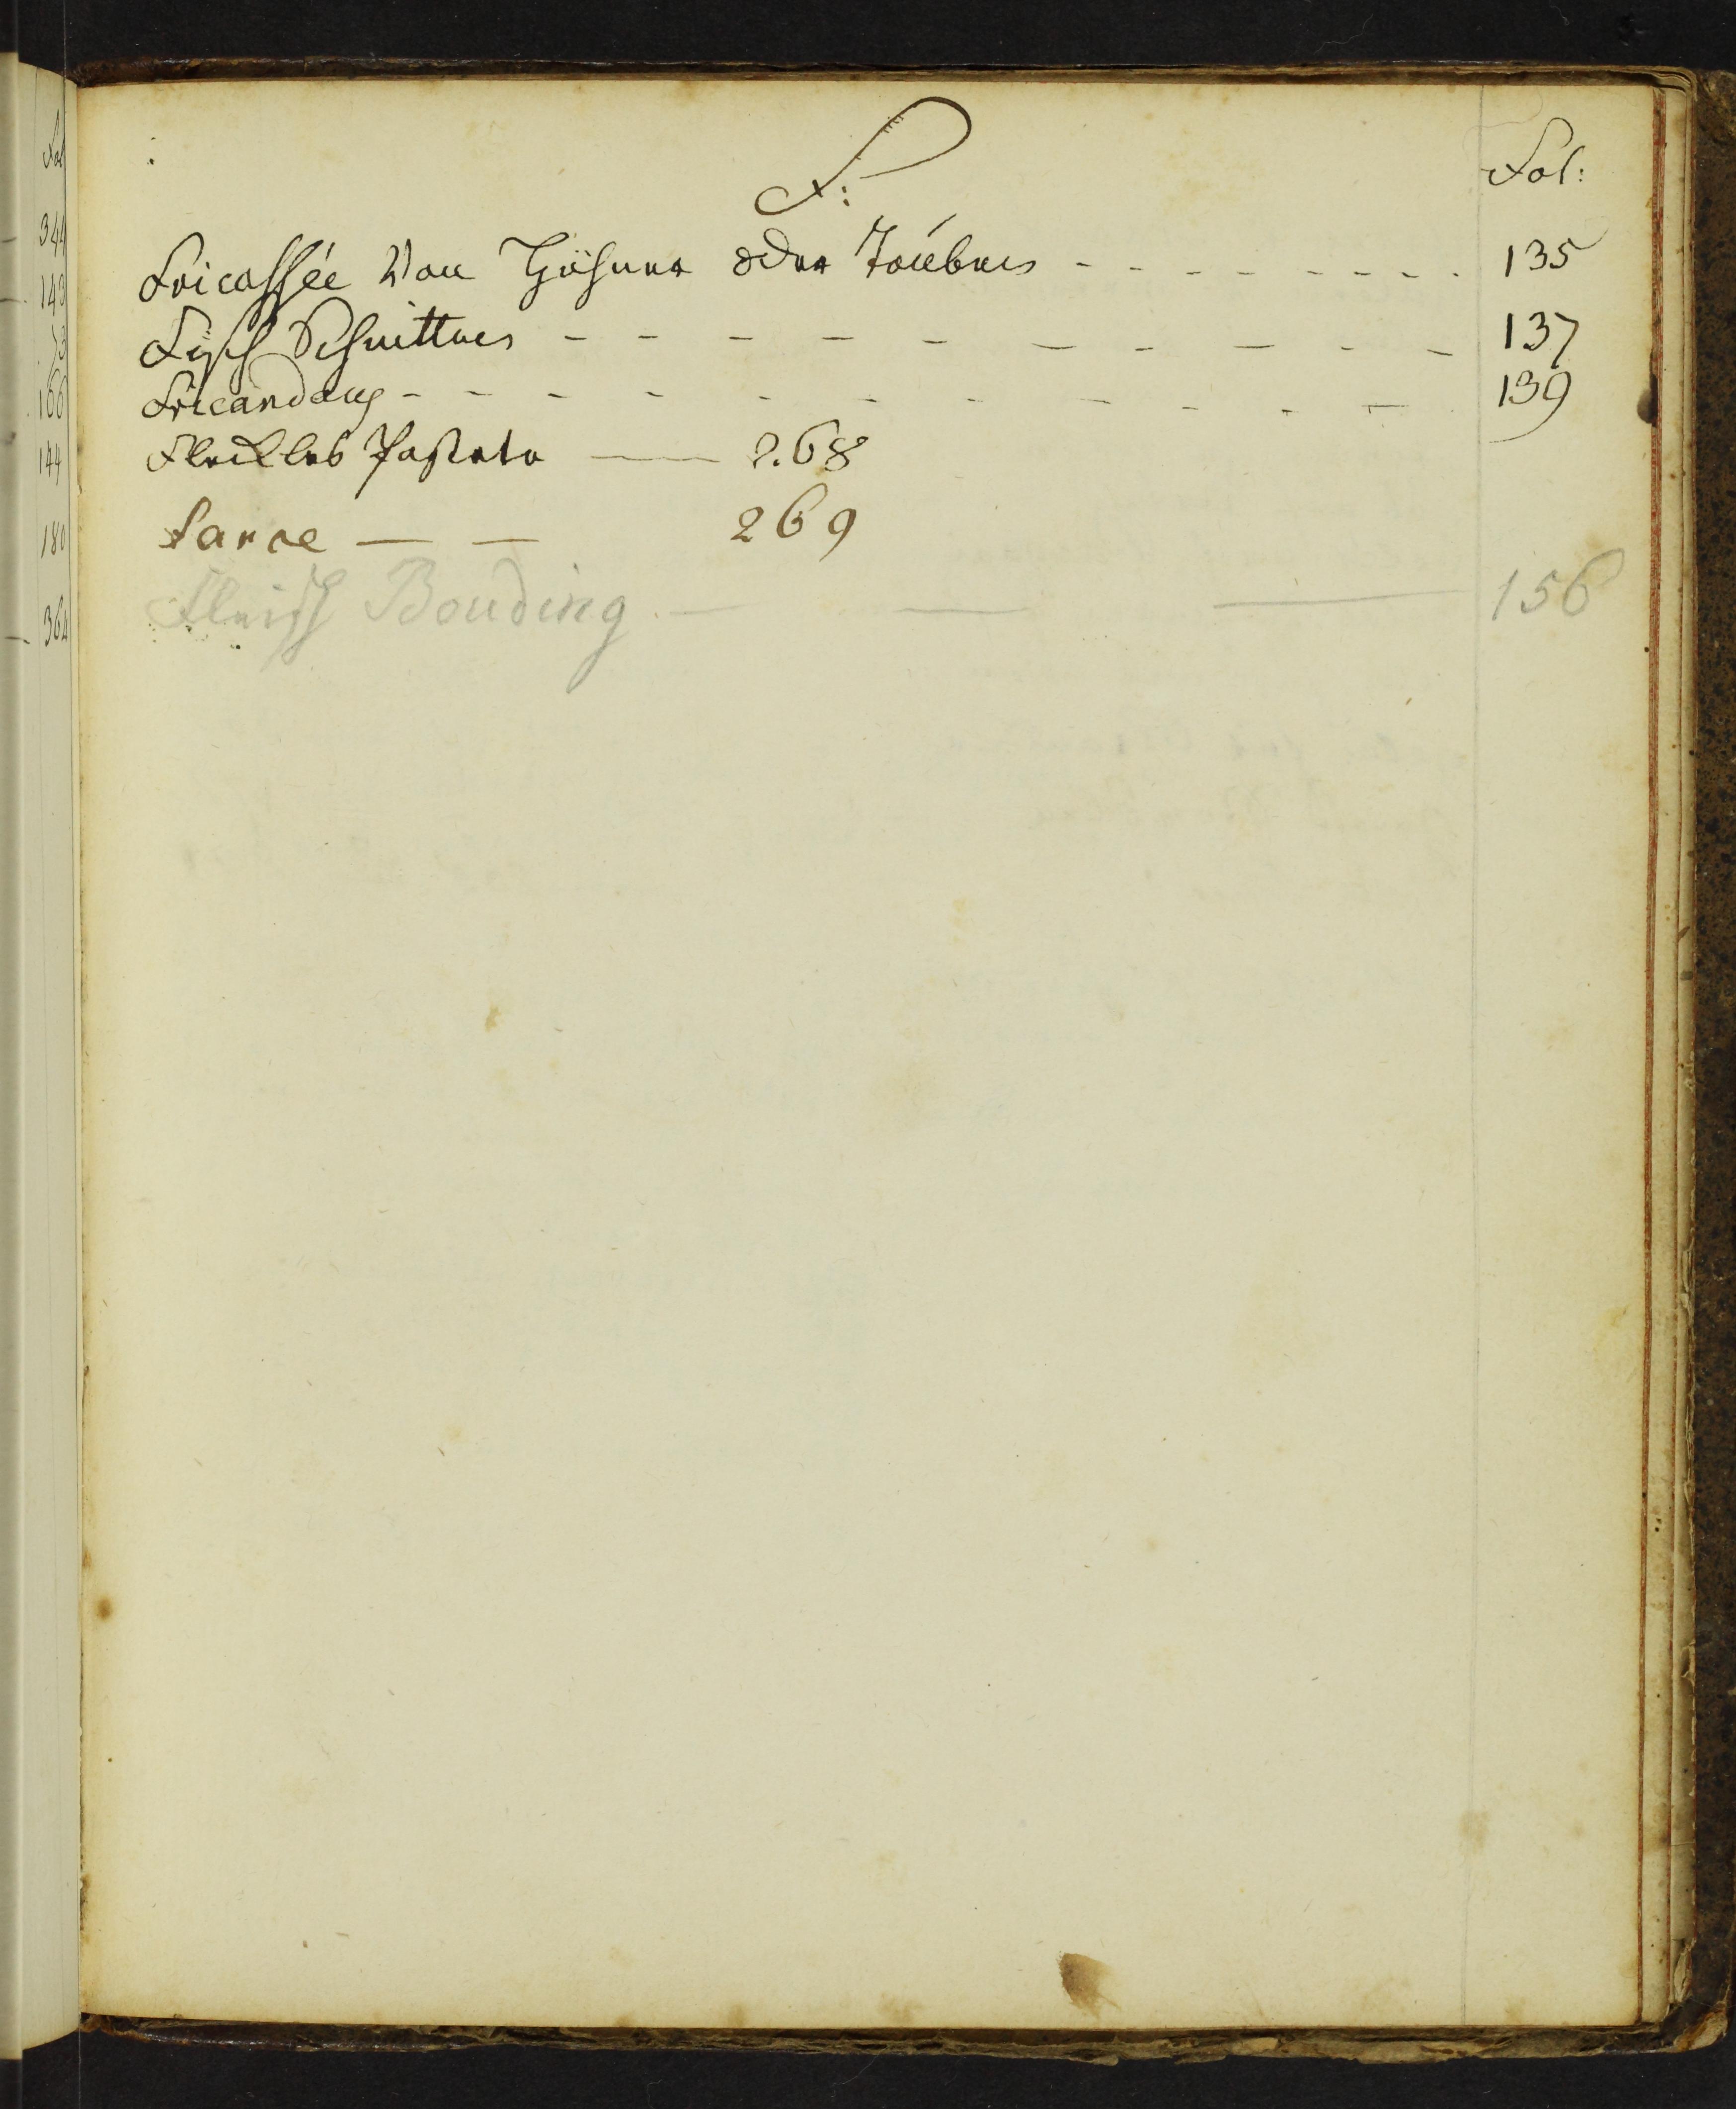 F:
Fol:
Fricassée Von Hühner oder Taúben - - - - - - - - - 135
Fisch Schnitten - - - - - - - - - - - 137
Fricandaux - - - - - - - - - - - 139
Fleckles Pastete — 268
Farce — — 269
Fleisch Bouding — — — 156
Fol
344
143
73
166
144
180
364